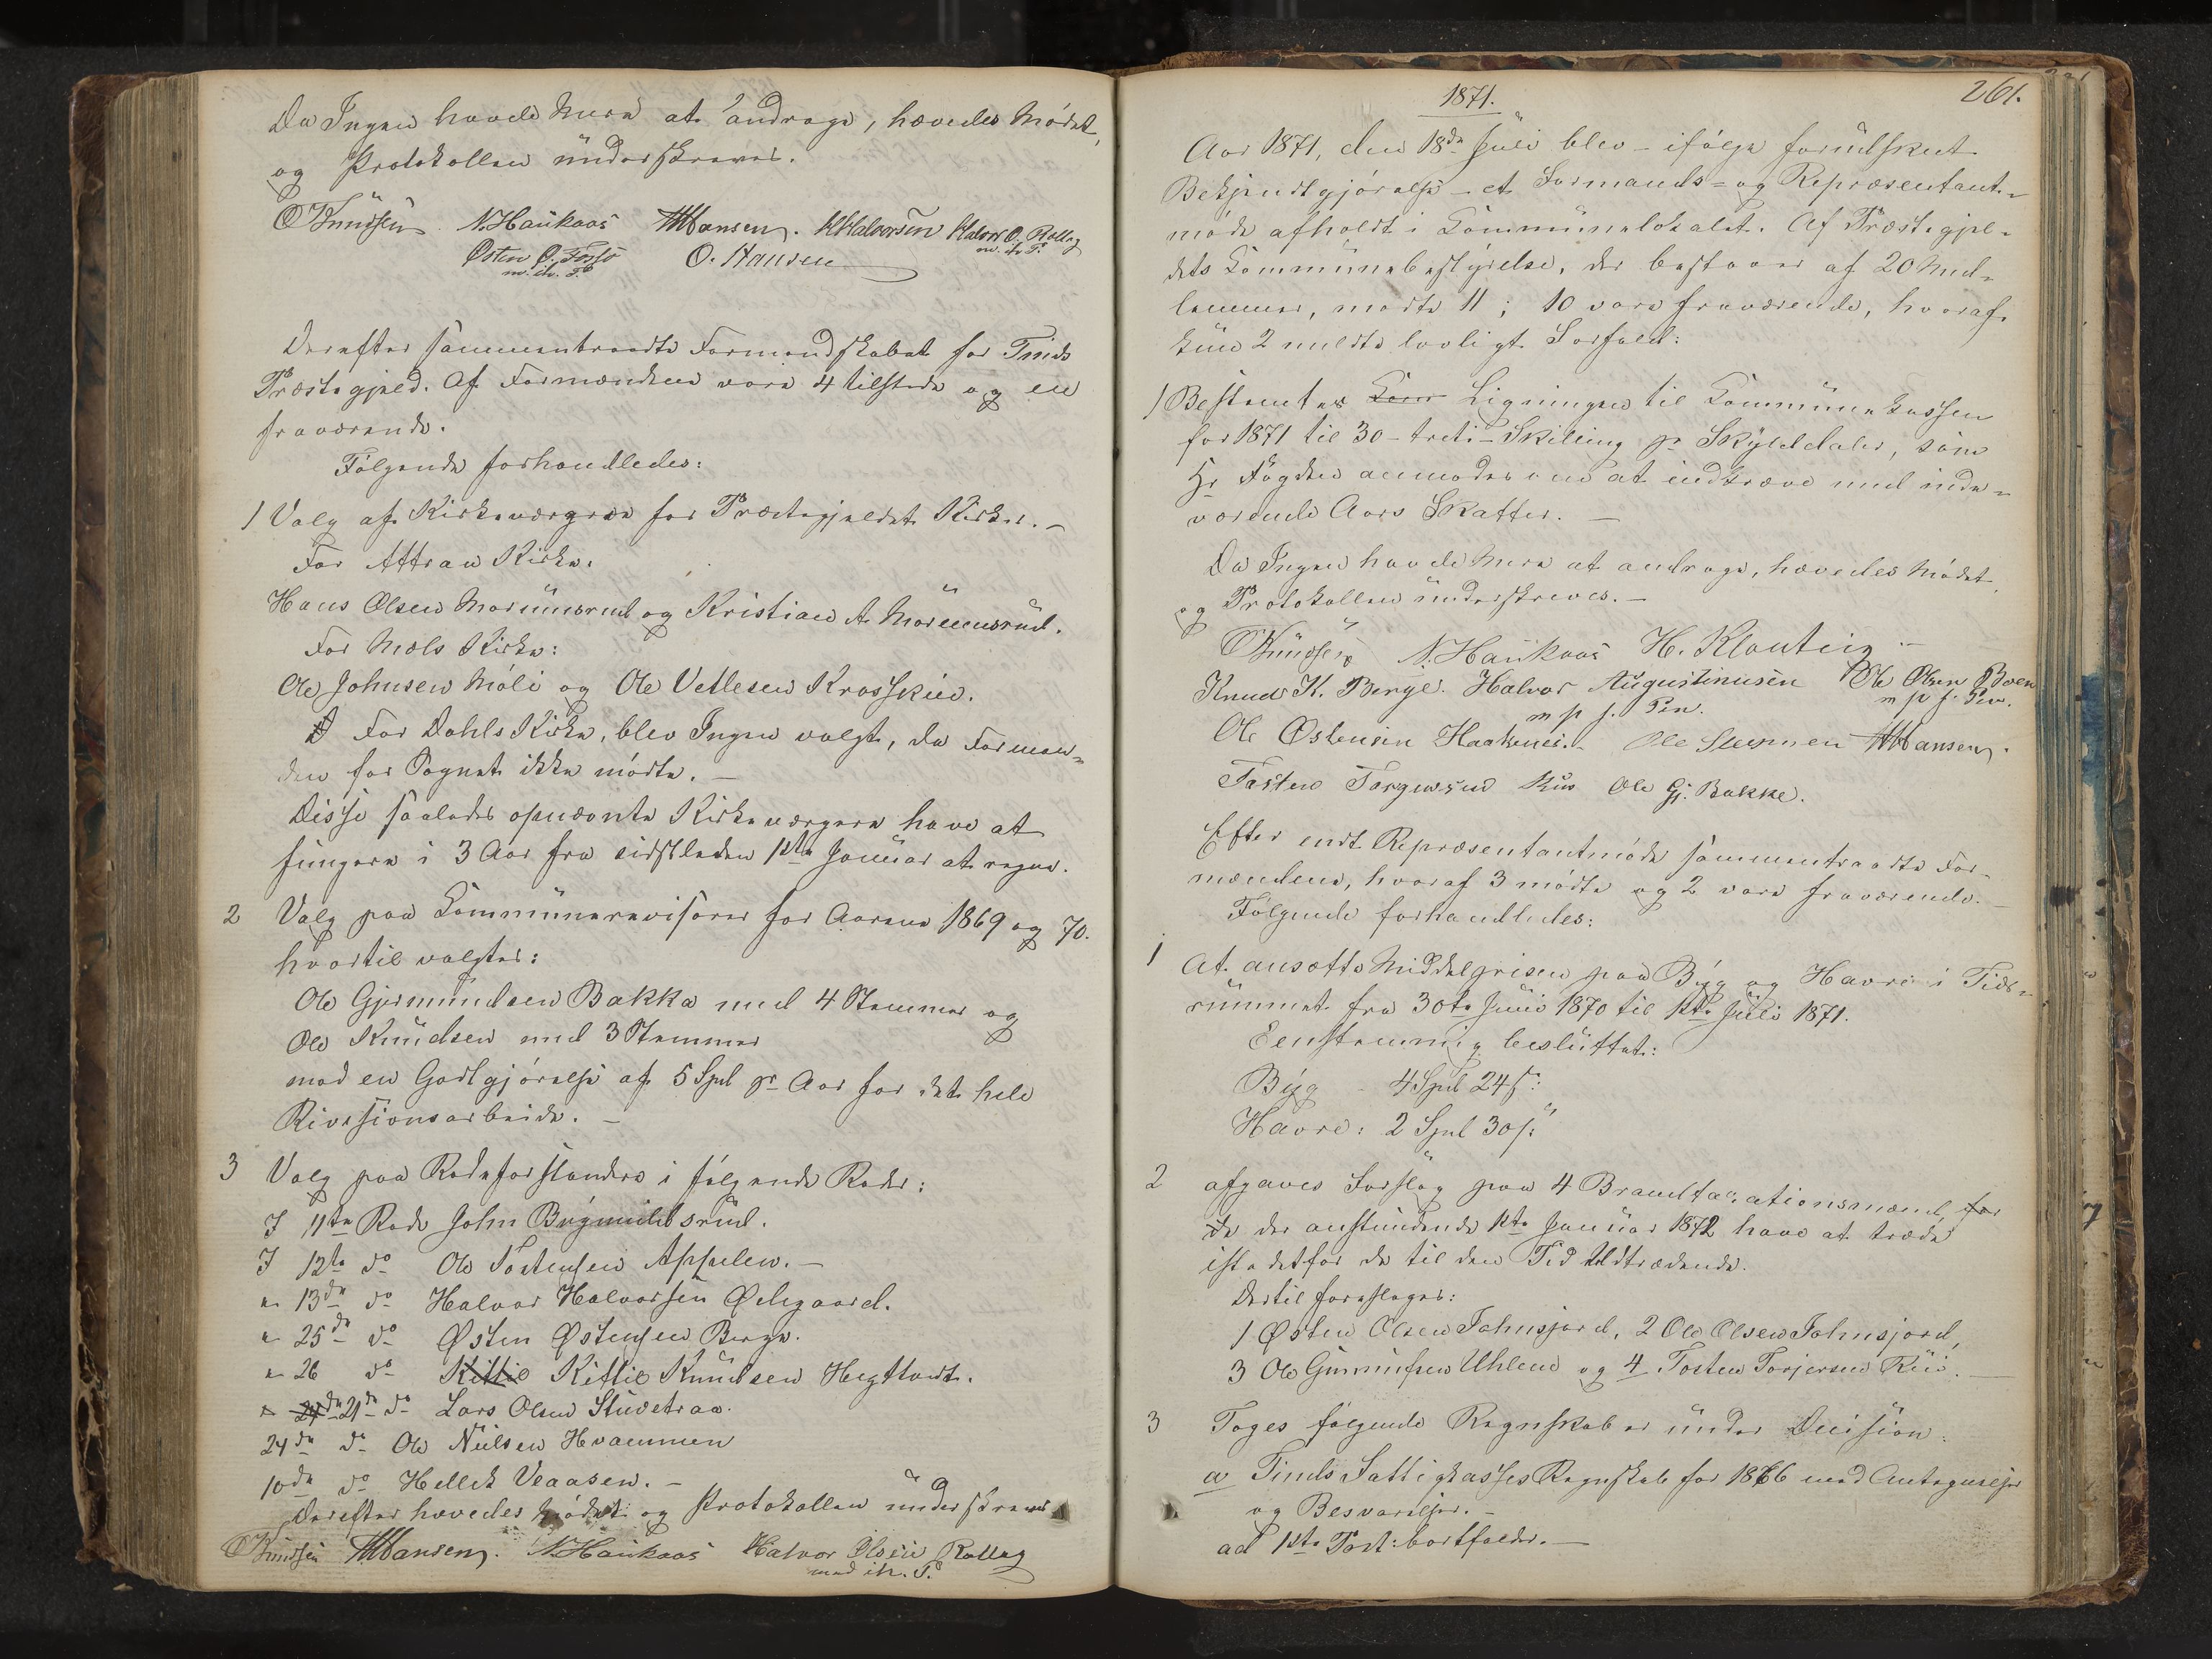 Da Ingen havde mere at andrage, hævedes Mödet,
og Protokollen underskreves.
OKnudsen. N. Haukaas HHansen. HHalvorsen Halvor O. Rollag
m. ih. P.
Østen O. Fosso O. Hansen
m. ih. P.
Derefter sammentraadte Formandskabet for Tinds
Præstegjeld. Af Formændene vare 4 tilstede og en
fraværende.
Fölgende forhandledes:
1 Valg af Kirkeværgere for Præstegjeldets Kirker. –
For Attraa Kirke.
Hans Olsen Marumsrud og Kristian A. Marumsrud.
For Mæls Kirke:
Ole Johnsen Möli og Ole Vetlesen Krosskin.
For Dahls Kirke, blev Ingen valgt, da Forman-
den for Sognet ikke mödte. –
Disse saaledes opnævnte Kirkeværgere have at
fungere i 3 Aar fra sidstleden 1ste Januar at regne.
2 Valg paa Communerevisorer for Aarene 1869 og 70.
hvortil valgtes:
Ole Gjermundsen Bakka med 4 Stemmer og
Ole Knudsen med 3 Stemmer
mod en Godtgjörelse af 5 Spd pr Aar for det hele
Revisionsarbeide. –
3 Valg paa Rodeforstandere i fölgende Roder:
I 11te Rode John Bögmildsrud.
I 12te do Ole Tostensen Appelen. –
" 13de do Halvor Halvorsen Ødegaard.
" 25de do Østen Østensen Berge.
" 26 do Kittil Kittil Knudsen Hegtvedt.
" 24de 21de do Lars Olsen Studetraa.
24de do Ole Nielsen Hvammen
10de do Hellek Veaasen. –
Derefter hævedes Mödet og Protokollen underskreves
OKnudsen HHansen. N. Haukaas Halvor Olsen Rollag
med ih. P.
1871. 261.
Aar 1871, den 18de Juli blev – ifölge forudskeet
Bekjendtgjörelse – et Formands- og Repræsentant-
möde afholdt i Communelokalet. Af Præstegjel-
dets Communebestyrelse, der bestaaer af 20 Med-
lemmer, mödte 11; 10 vare fraværende, hvoraf
kun 2 meldte lovligt Forfald:
1 Bestemtes Com Ligningen til Communekassen
for 1871 til 30 – treti – Skilling pr Skylddaler, som
Hr Fogden anmodes om at indkræve med inde-
værende Aars Skatter. –
Da Ingen havde mere at andrage, hævedes Mödet
og Protokollen underskreves. –
OKnudsen N. Haukaas H. Kloutein
Knud K. Berge. Halvor Augustinusen Ole Olsen Boen
m p f. Pen. m p f. Pen.
Ole Østensen Haakenes. – Ole HHansen.
Tosten Torgersen Rus Ole Gj. Bakke.
Efter endt Repræsentantmöde sammentraadte For-
mændene, hvoraf 3 mödte og 2 vare fraværende. –
Fölgende forhandledes:
1 At ansætte Middelprisen paa Byg og Havre i Tids-
rummet fra 30te Juni 1870 til 1ste Juli 1871.
Eenstemmig besluttet:
Byg – 4 Spd 24 s:
Havre: 2 Spd 30 s:
2 afgaves Forslag paa 4 Brandtaxationsmænd, for
de der anstundende 1ste Januar 1872 have at træde
istedetfor de til den Tid Udtrædende.
Dertil foreslages:
1 Østen Olsen Jahnsjord, 2 Ole Olsen Jahnsjord,
3 Ole Gunnufsen Uhlene og 4 Tosten Torjersen Rui. –
3 Toges fölgende Regnskaber under Decision:
a Tinds Fattigkasses Regnskab for 1866 med Antegnelser
og Besvarelser. –
ad 1ste Post: bortfalder. –